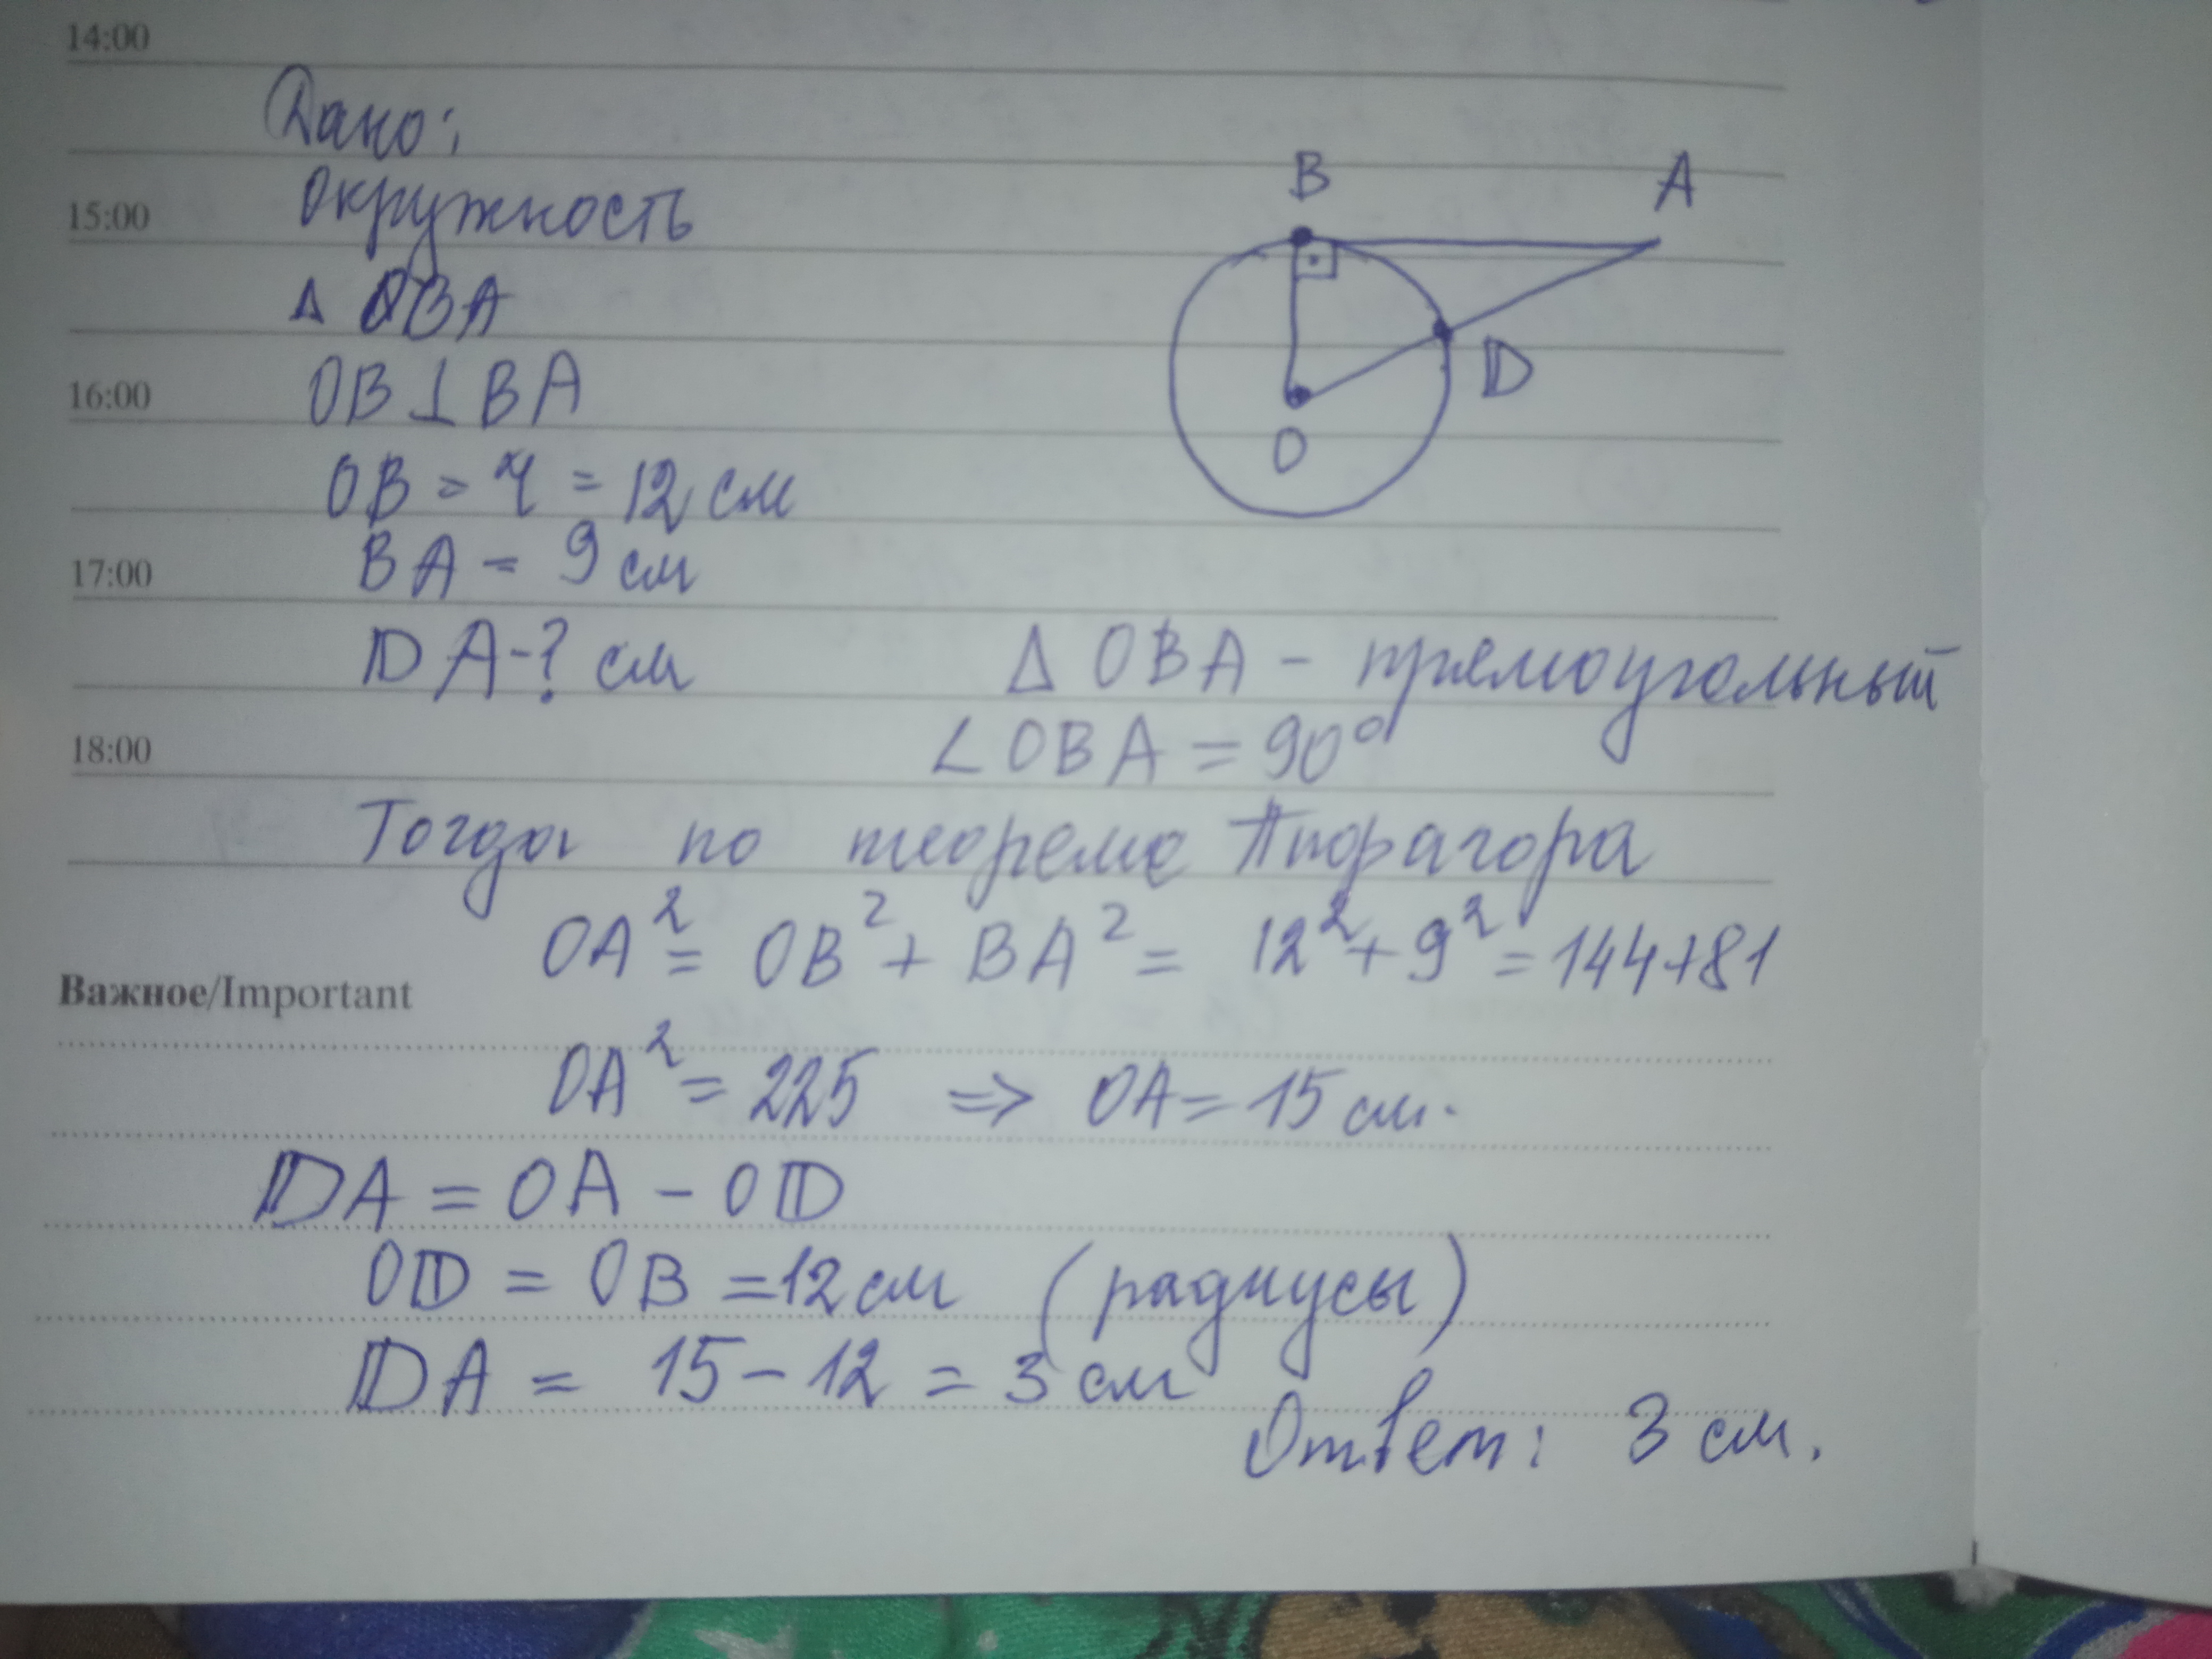 14:00
Дано:
B A
15:00 окружность
Δ OBA
D
16:00 OB ⊥ BA
O
OB = r = 12 см
BA = 9 см
17:00
DA - ? см
Δ OBA - прямоугольный
18:00
∠ OBA = 90°
Тогда по теореме Пифагора
OA² = OB² + BA² = 12² + 9² = 144+81
Важное/Important
OA² = 225 ⇒ OA = 15 см.
DA = OA - OD
OD = OB = 12 см (радиусы)
DA = 15 - 12 = 3 см
Ответ: 3 см.